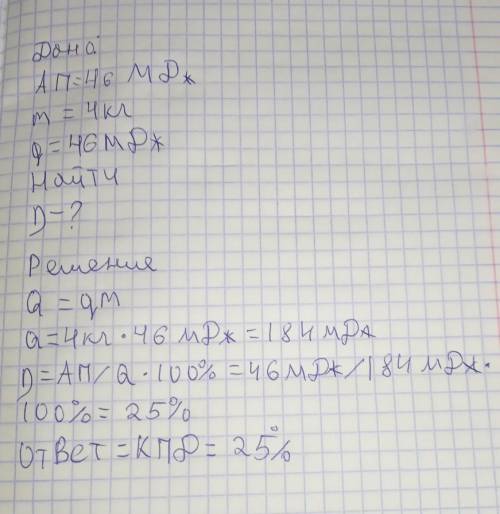 Дано
АП=46 МДж
m = 4кг
q = 46МДж
Найти
D-?
Решение
Q = qm
Q=4кг·46 МДж=184МДж
D=АП/Q·100%=46МДж/184МДж·
100%= 25%
Ответ=КПД= 25%